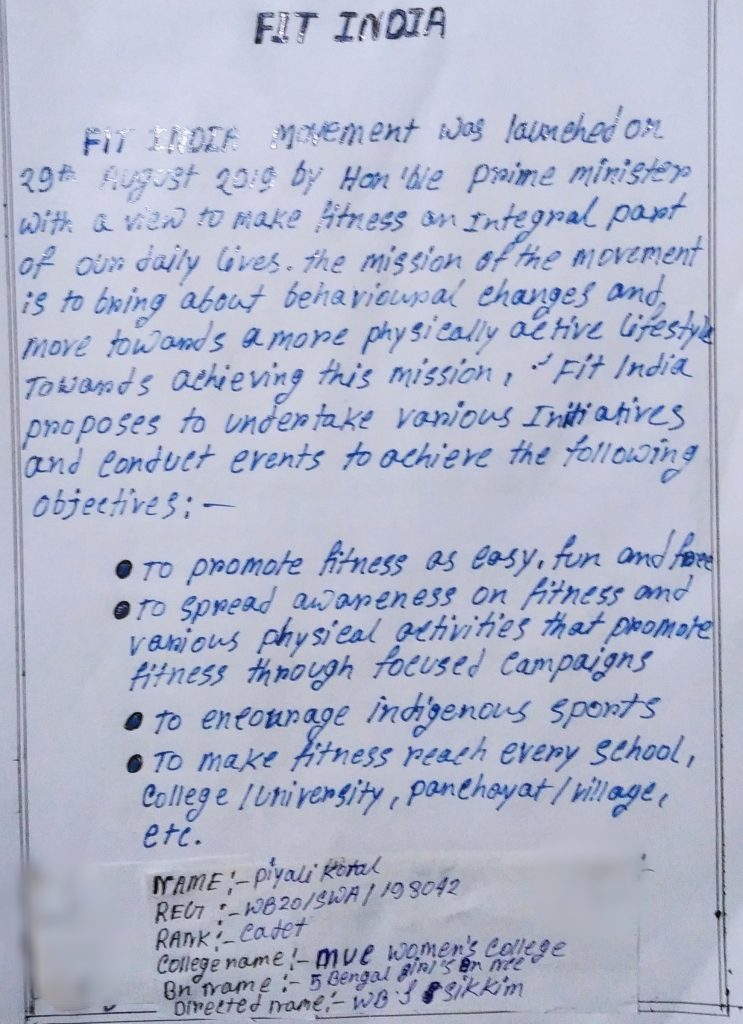 FIT INDIA
FIT INDIA movement was launched on
29th August 2019 by Hon'ble prime minister
with a view to make fitness an Integral part
of our daily lives. the mission of the movement
is to bring about behavioural changes and
move towards a more physically active lifestyle
Towards achieving this mission, Fit India
proposes to undertake various Initiatives
and conduct events to achieve the following
objectives:—
• To promote fitness as easy, fun and free
• To spread awareness on fitness and
various physical activities that promote
fitness through focused campaigns
• To encourage indigenous sports
• To make fitness reach every school,
College/University, panchayat/village,
etc.
NAME:- Piyali Kotal
REGT:- WB20/SWA/198042
RANK:- Cadet
College name:- MUC Women's College
Bn name:- 5 Bengal girl's Bn ncc
Directed name:- WB & Sikkim